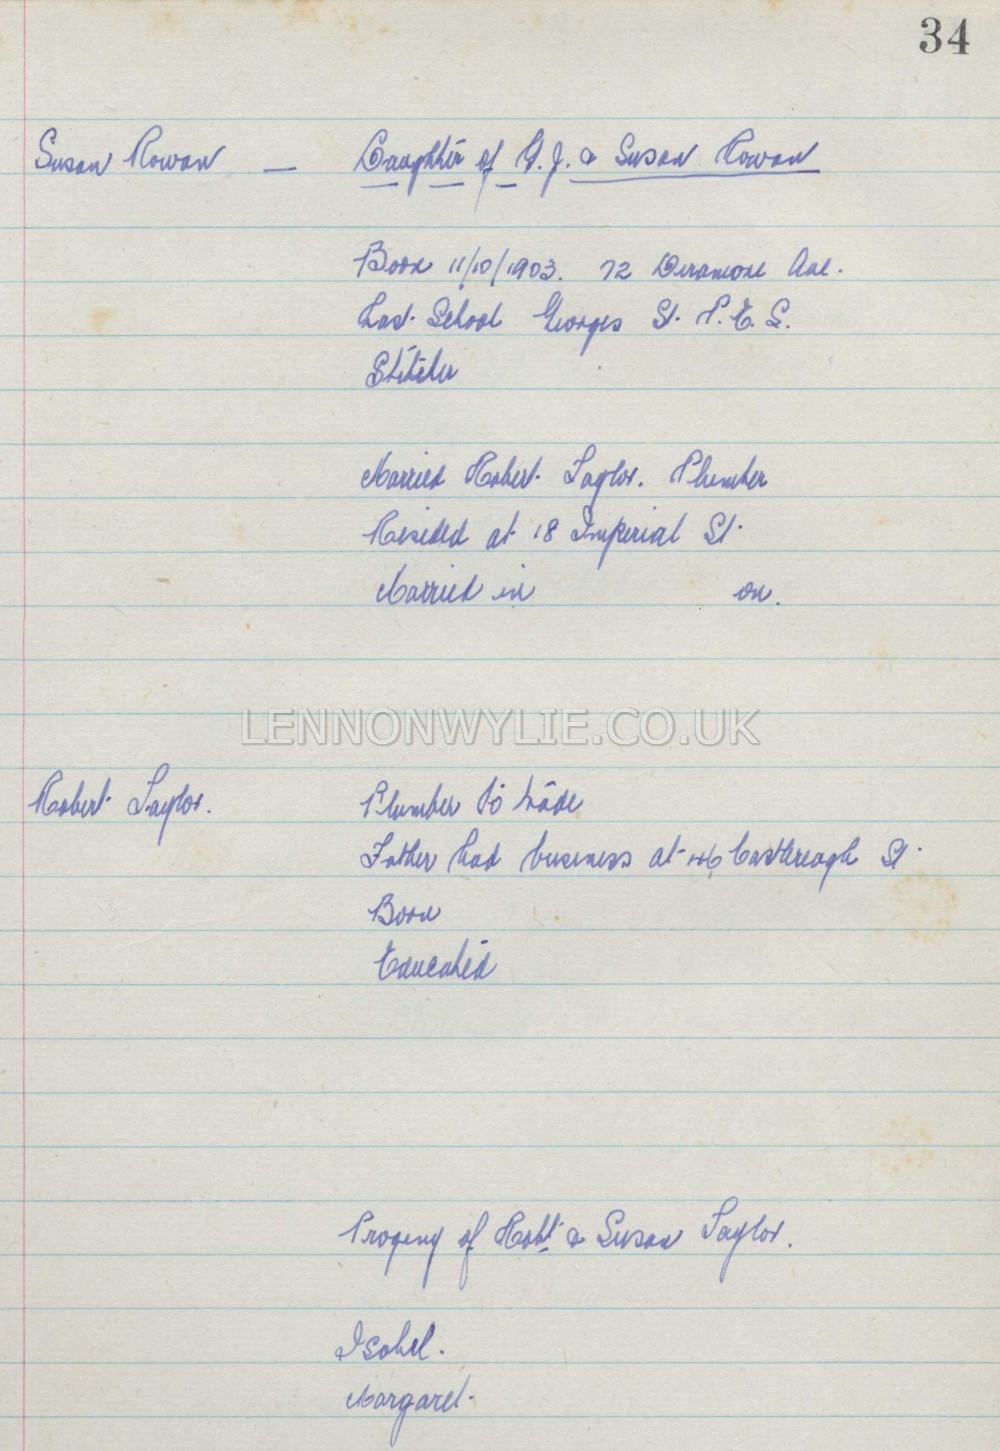 34
Susan Rowan — Daughter of W.J. & Susan Rowan
Born 11/10/1903. 72 Deramore Ave.
Last School Georges St. P.E.S.
Stitcher
Married Robert Taylor. Plumber
Resided at 18 Imperial St.
Married in on.
LENNONWYLIE.CO.UK
Robert Taylor. Plumber to trade
Father had business at 46 Castlereagh St.
Born
Educated
Progeny of Robt. & Susan Taylor.
Isobel.
Margaret.